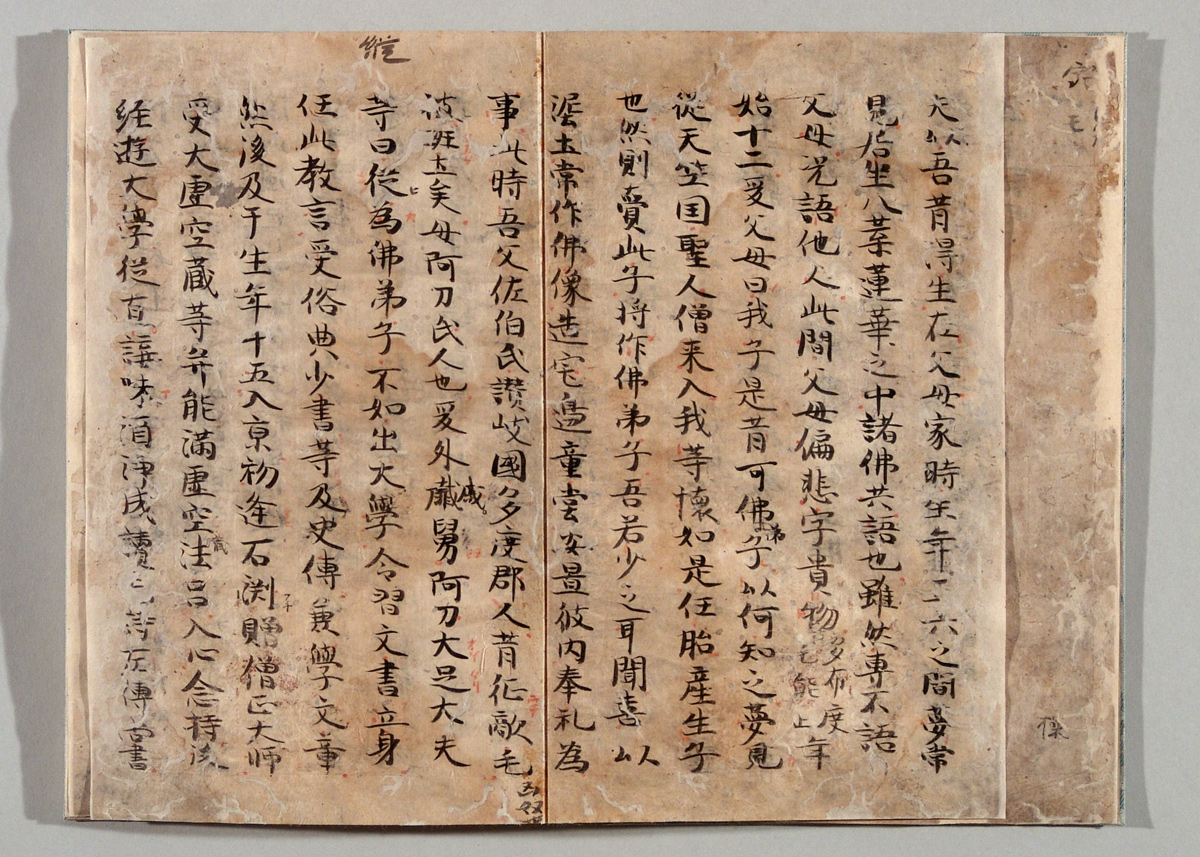 夫以吾昔得生在父母家時生年六之間夢常
見居坐八葉蓮華之中諸佛共語也雖然專不語
父母况語他人此間父母偏悲字貴物
多布度
年
始十二爰父母曰我子是昔可佛子以何知之夢見
弟
從天竺国聖人僧来入我等懷如是任胎産生子
也然則賷此子将作佛弟子吾若少之耳聞喜以
埿土常作佛像造宅邊童堂安置彼内奉礼為
事此時吾父佐伯氏讃岐國多度郡人昔征敵毛
母阿刀氏人也爰外舅阿刀大足大夫
等曰從為佛弟子不如出大學令習文書立身
任此教言受俗典少書等及史傳兼學文章
然後及于生年十五入京初逢石渕贈僧正大師
受大虚空藏等并能滿虚空法呂入心念持後
藏
經遊大學從講味酒淨成讀
縱